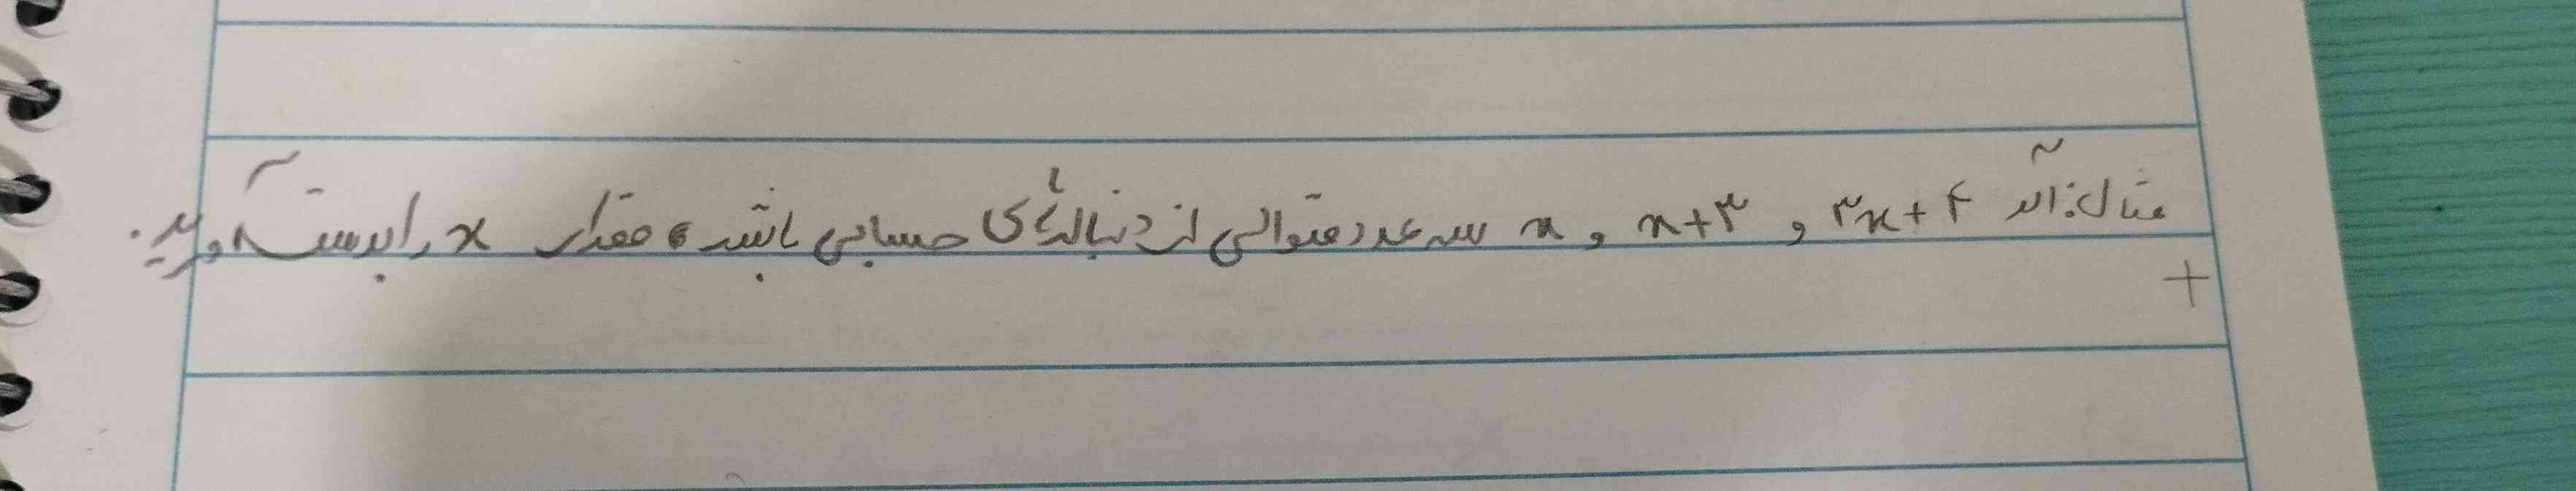 مثال: اگر ۳x+۴ و x+۳ و x سه عدد متوالی از دنباله‌ای حسابی باشد، مقدار x را بدست آورید.
+